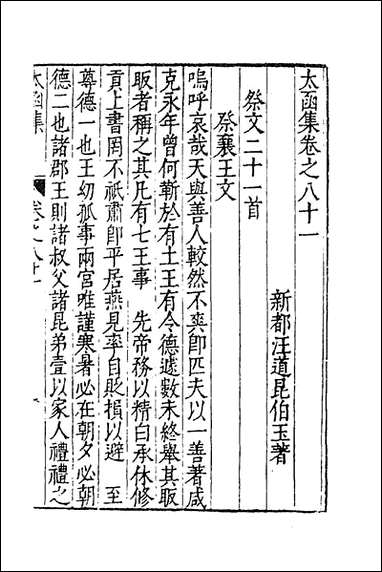 太函集卷之八十一
新都汪道昆伯玉著
祭文二十一首
祭襄王文
嗚呼哀哉天與善人較然不爽卽匹夫以一善著咸
克永年曾何靳於有土王有令德遽數未終舉其

者稱之其凡有七王事　先帝務以精白承休修
貢上書罔不祗肅卽平居燕見率自貶損以避　至
尊德一也王幼孤事兩宮唯謹寒暑必在朝夕必朝
德二也諸郡王則諸叔父諸昆弟壹以家人禮禮之
太函集
卷之八十一